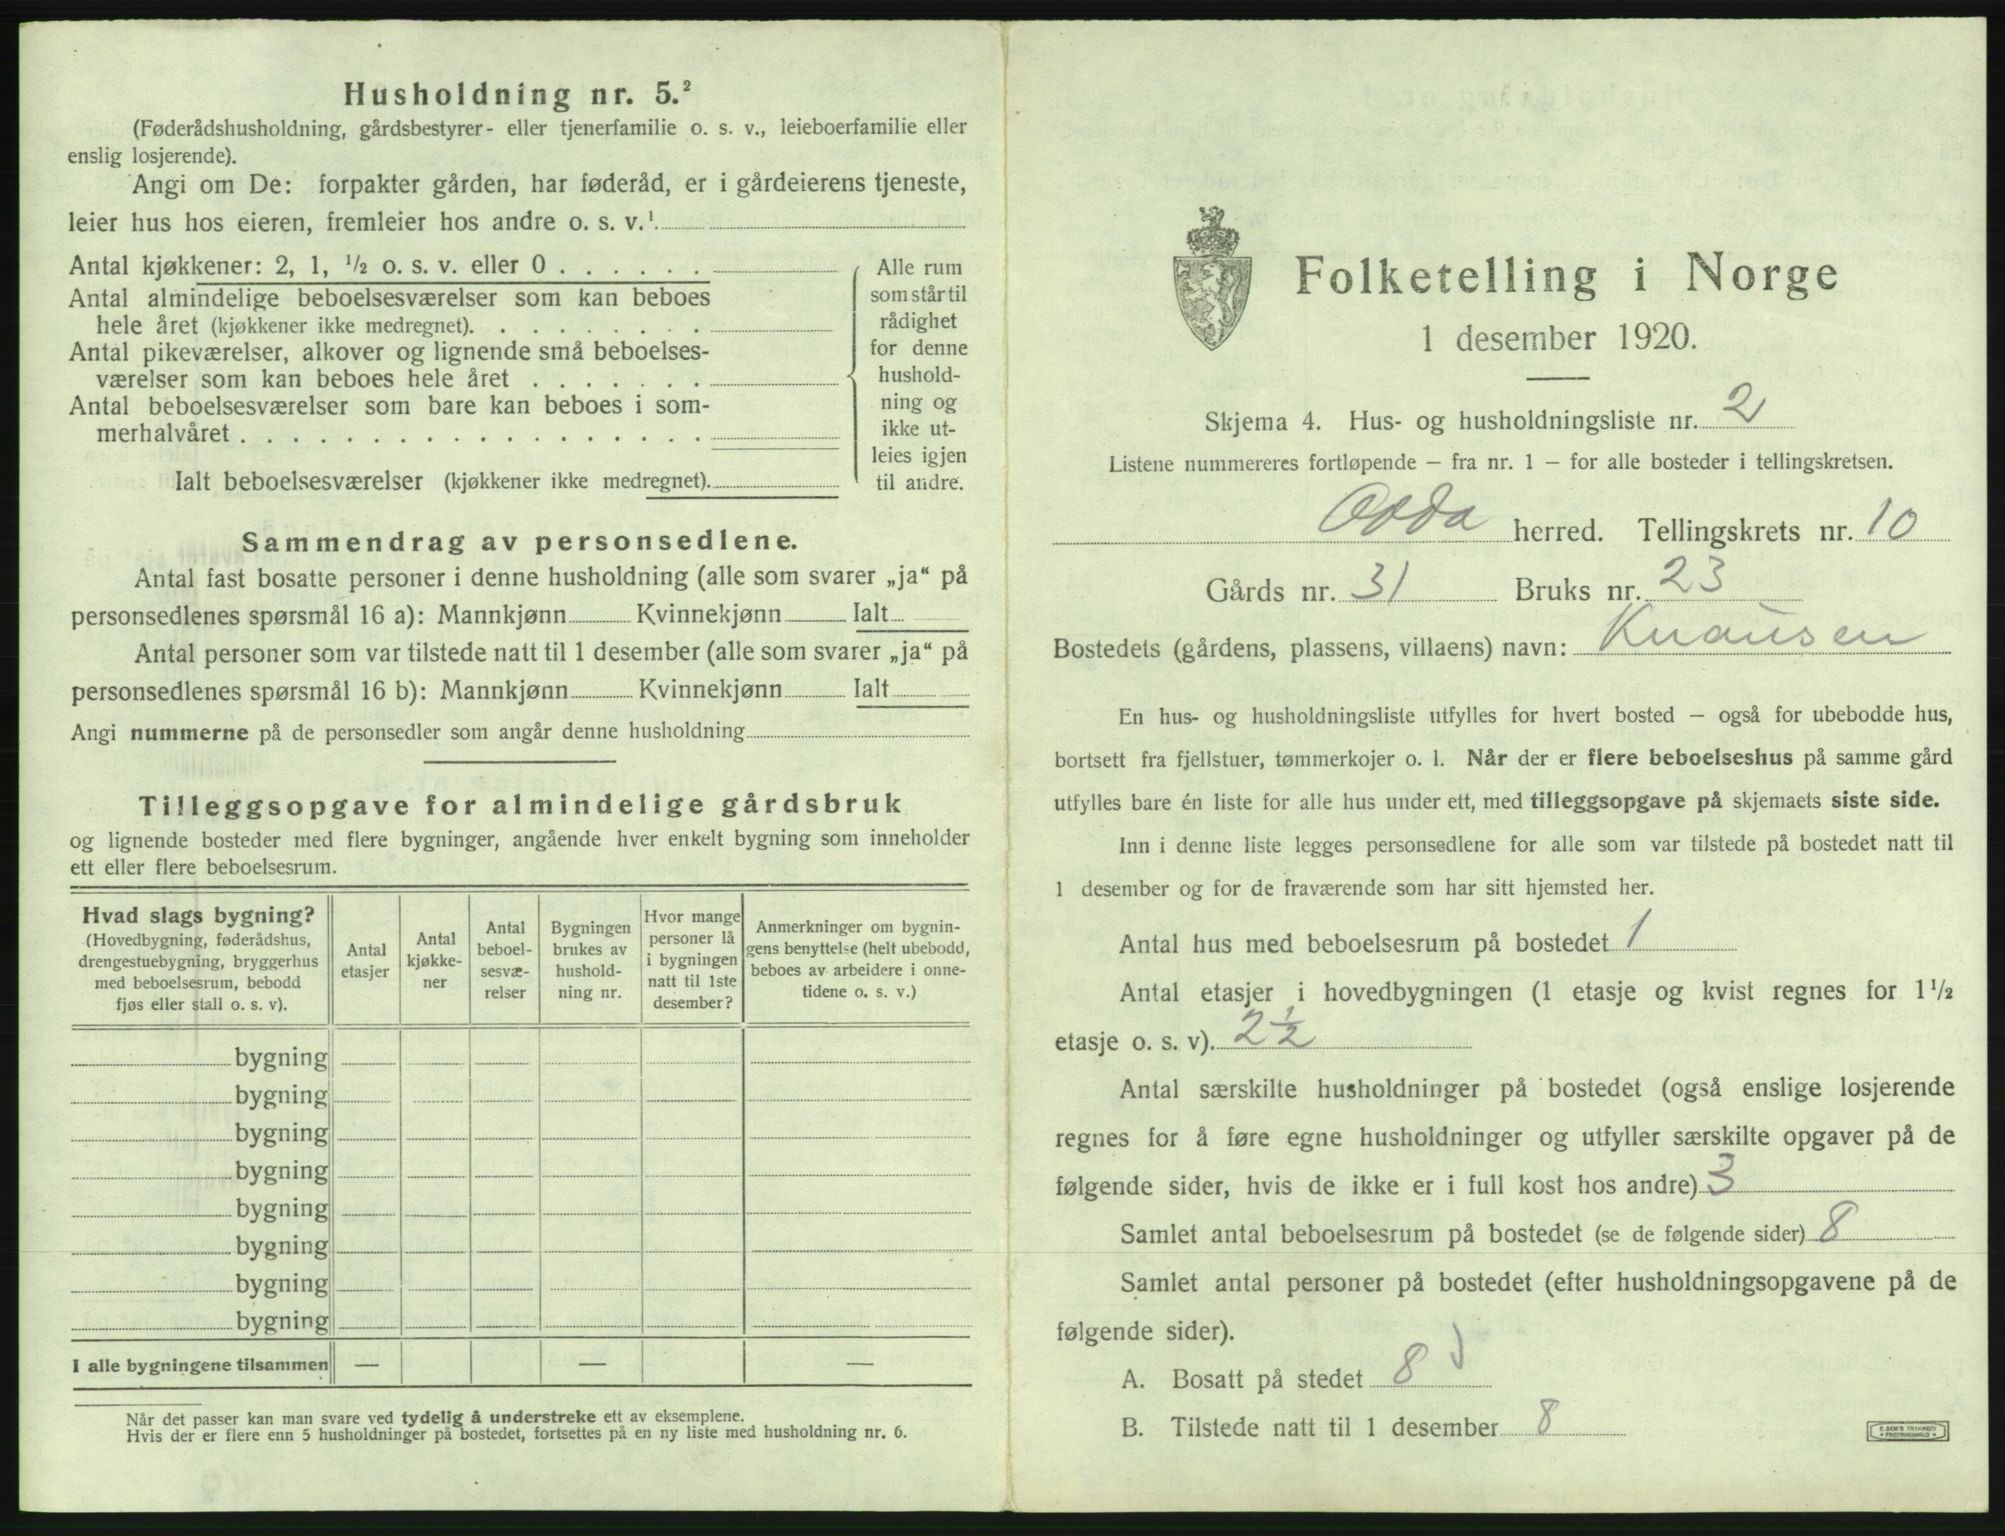 Husholdning nr. 5.²
(Føderådshusholdning, gårdsbestyrer- eller tjenerfamilie o. s. v., leieboerfamilie eller
enslig losjerende).
Angi om De: forpakter gården, har føderåd, er i gårdeierens tjeneste,
leier hus hos eieren, fremleier hos andre o. s. v.¹
Antal kjøkkener: 2, 1, ½ o. s. v. eller 0 . . . . . .
Antal almindelige beboelsesværelser som kan beboes
hele året (kjøkkener ikke medregnet). . . . . . . . .
Antal pikeværelser, alkover og lignende små beboelses-
værelser som kan beboes hele året . . . . . . .
Antal beboelsesværelser som bare kan beboes i som-
merhalvåret . . . . . . . . . . . . . . . . . .
Ialt beboelsesværelser (kjøkkener ikke medregnet).
Alle rum
som står til
rådighet
for denne
hushold-
ning og
ikke ut-
leies igjen
til andre.
Sammendrag av personsedlene.
Antal fast bosatte personer i denne husholdning (alle som svarer „ja“ på
personsedlenes spørsmål 16 a): Mannkjønn Kvinnekjønn Ialt
Antal personer som var tilstede natt til 1 desember (alle som svarer „ja“ på
personsedlenes spørsmål 16 b): Mannkjønn Kvinnekjønn Ialt
Angi nummerne på de personsedler som angår denne husholdning
Tilleggsopgave for almindelige gårdsbruk
og lignende bosteder med flere bygninger, angående hver enkelt bygning som inneholder
ett eller flere beboelsesrum.
Hvad slags bygning?
(Hovedbygning, føderådshus,
drengestuebygning, bryggerhus
med beboelsesrum, bebodd
fjøs eller stall o. s. v).
Antal
etasjer
Antal
kjøkke-
ner
Antal
beboel-
sesvæ-
relser
Bygningen
brukes av
hushold-
ning nr.
Hvor mange
personer lå
i bygningen
natt til 1ste
desember?
Anmerkninger om bygnin-
gens benyttelse (helt ubebodd,
beboes av arbeidere i onne-
tidene o. s. v.)
bygning
bygning
bygning
bygning
bygning
bygning
bygning
bygning
I alle bygningene tilsammen — — —
Når det passer kan man svare ved tydelig å understreke ett av eksemplene.
Hvis der er flere enn 5 husholdninger på bostedet, fortsettes på en ny liste med husholdning nr. 6.
Folketelling i Norge
1 desember 1920.
Skjema 4. Hus- og husholdningsliste nr. 2
Listene nummereres fortløpende — fra nr. 1 — for alle bosteder i tellingskretsen.
Odda herred. Tellingskrets nr. 10
Gårds nr. 31 Bruks nr. 23
Bostedets (gårdens, plassens, villaens) navn: Knausen
En hus- og husholdningsliste utfylles for hvert bosted — også for ubebodde hus,
bortsett fra fjellstuer, tømmerkojer o. l. Når der er flere beboelseshus på samme gård
utfylles bare én liste for alle hus under ett, med tilleggsopgave på skjemaets siste side.
Inn i denne liste legges personsedlene for alle som var tilstede på bostedet natt til
1 desember og for de fraværende som har sitt hjemsted her.
Antal hus med beboelsesrum på bostedet 1
Antal etasjer i hovedbygningen (1 etasje og kvist regnes for 1½
etasje o. s. v). 2½
Antal særskilte husholdninger på bostedet (også enslige losjerende
regnes for å føre egne husholdninger og utfyller særskilte opgaver på de
følgende sider, hvis de ikke er i full kost hos andre) 3
Samlet antal beboelsesrum på bostedet (se de følgende sider) 8
Samlet antal personer på bostedet (efter husholdningsopgavene på de
følgende sider).
A. Bosatt på stedet 8
B. Tilstede natt til 1 desember 8